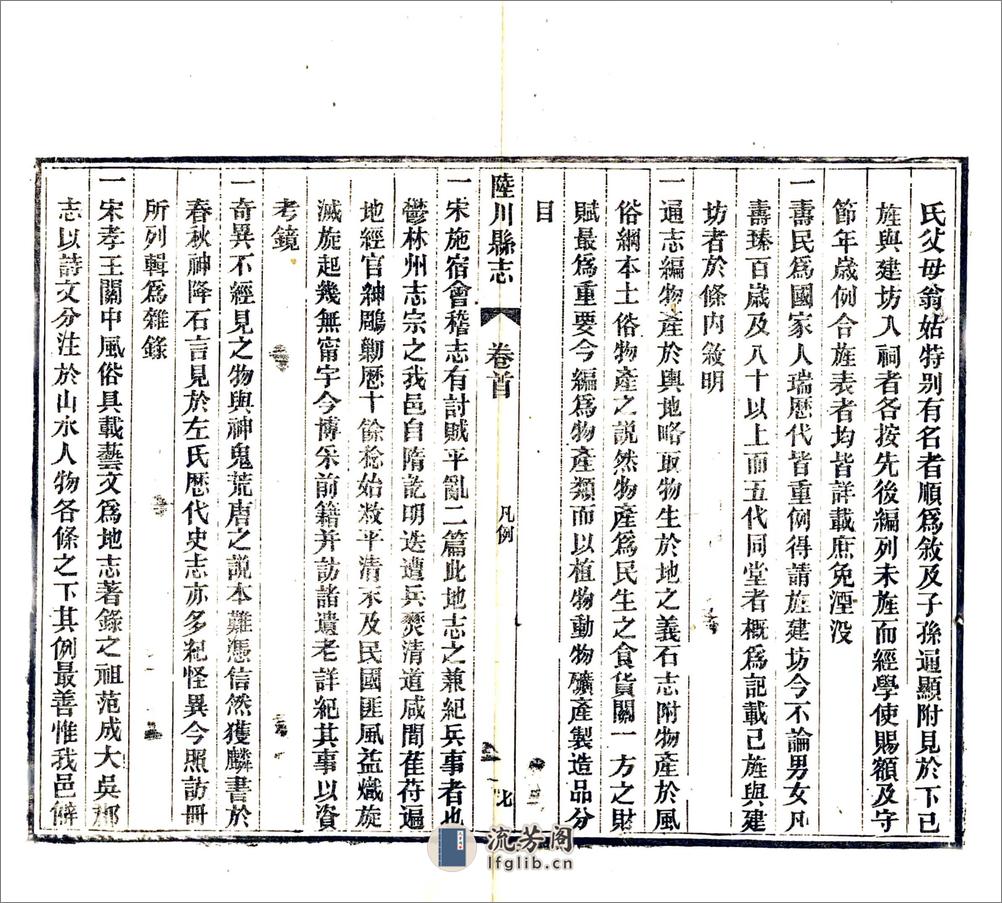 氏父母翁姑特别有名者順爲敘及子孫通顯附見於下已
旌與建坊入祠者各按先後編列未旌而經學使賜額及守
節年歲例合旌表者均皆詳載庶免湮没
一壽民爲國家人瑞歷代皆重例得請旌建坊今不論男女凡
壽臻百歲及八十以上而五代同堂者概爲記載已旌與建
坊者於條内敘明
一通志編物產於輿地略取物生於地之義石志附物產於風
俗綱本土俗物產之説然物產爲民生之食貨關一方之財
賦最爲重要今編爲物產類而以植物動物礦產製造品分
目
陸川縣志
卷首
凡例
一宋施宿會稽志有討賊平亂二篇此地志之兼紀兵事者也
鬱林州志宗之我邑自隋訖明迭遭兵燹清道咸間萑苻遍
地經官紳勦歷十餘稔始敉平清末及民國匪風益熾旋
滅旋起幾無甯宇今博采前籍并訪諸遺老詳紀其事以資
考鏡
一奇異不經見之物與神鬼荒唐之説本難憑信然獲麟書於
春秋神降石言見於左氏歷代史志亦多紀怪異今照訪冊
所列輯爲雜錄
一宋孝王關中風俗具載藝文爲地志著錄之祖范成大吳郡
志以詩文分注於山水人物各條之下其例最善惟我邑僻
流芳阁
lfglib.cn